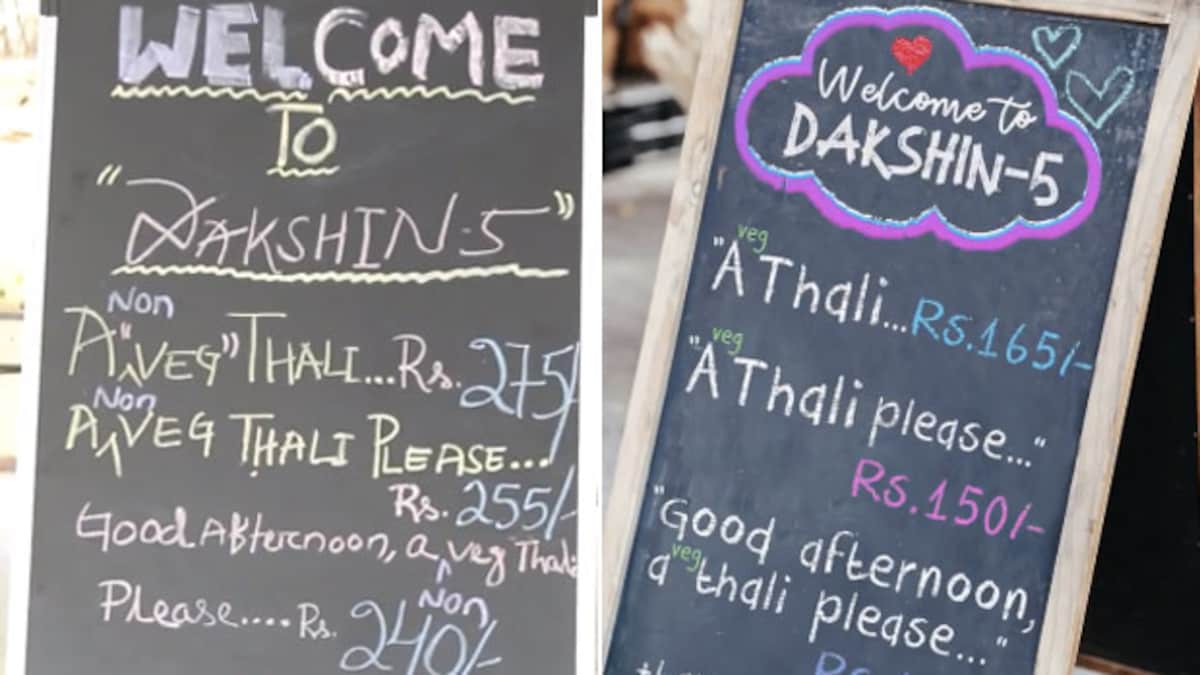 WELCOME
TO
"DAKSHIN-5"
Non
A "VEG" THALI...Rs.275/
Non
A VEG THALI PLEASE...
Rs.255/-
Good Afternoon, a veg Thali
Non
Please.... Rs. 240/-
Welcome to
DAKSHIN-5
veg
"A Thali...Rs.165/-
veg
"A Thali please..."
Rs.150/-
"Good afternoon,
veg
a thali please..."